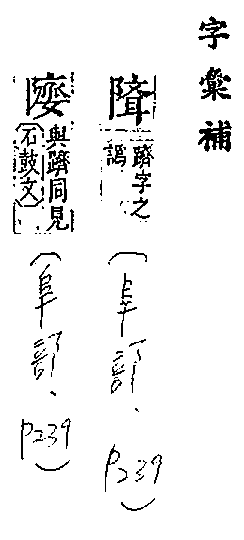 字彙補
隌 躋字之譌
(阜部. P239)
與躋同見石鼓文
(阜部. P239)